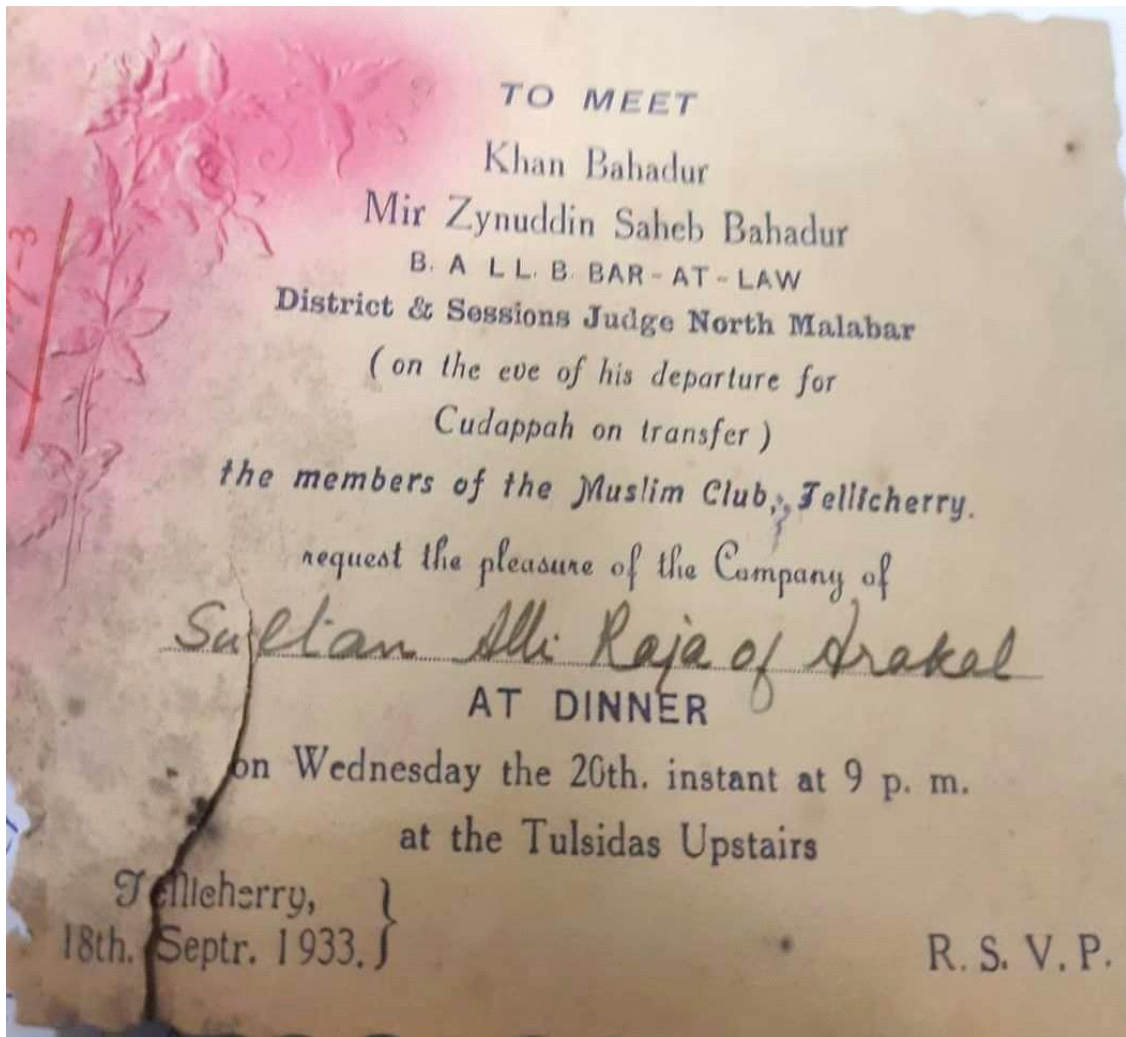 TO MEET
Khan Bahadur
Mir Zynuddin Saheb Bahadur
B. A L L. B. BAR-AT-LAW
District & Sessions Judge North Malabar
( on the eve of his departure for
Cudappah on transfer )
the members of the Muslim Club, Tellicherry.
request the pleasure of the Company of
Sultan Alli Raja of Arakal
AT DINNER
on Wednesday the 20th. instant at 9 p. m.
at the Tulsidas Upstairs
Tellicherry,
18th. Septr. 1933.
R. S. V. P.